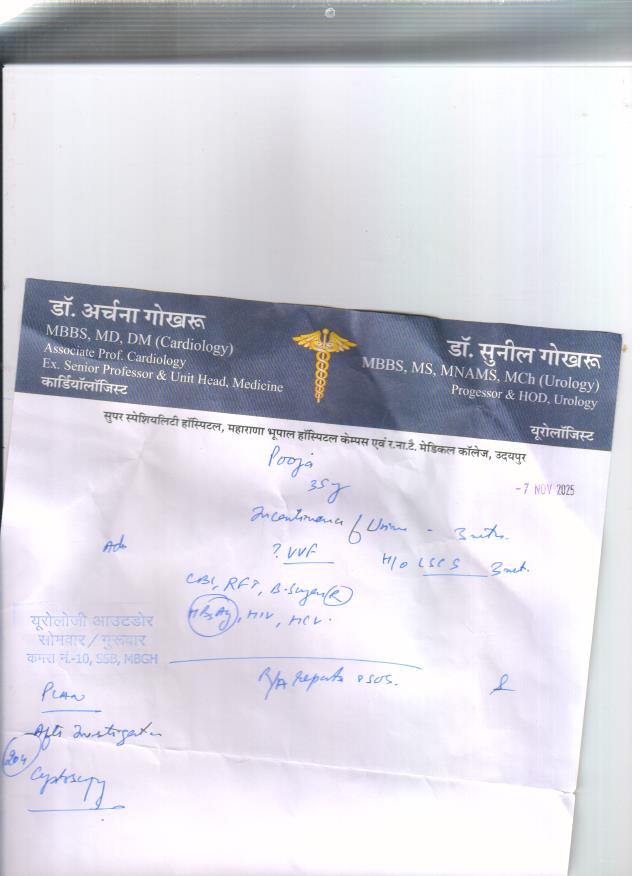 डॉ. अर्चना गोखरू
MBBS, MD, DM (Cardiology)
Associate Prof. Cardiology
Ex. Senior Professor & Unit Head, Medicine
कार्डियॉलॉजिस्ट
डॉ. सुनील गोखरू
MBBS, MS, MNAMS, MCh (Urology)
Progessor & HOD, Urology
यूरोलॉजिस्ट
सुपर स्पेशियलिटी हॉस्पिटल, महाराणा भूपाल हॉस्पिटल केम्पस एवं र.ना.टै. मेडिकल कॉलेज, उदयपुर
Pooja
35y
- 7 NOV 2025
Incontinence of Urine -
Adv
? VVF H/O LSCS
CBC, RFT, B. Sugar (R)
HBsAg, HIV, HCV.
यूरोलोजी आउटडोर
सोमवार / गुरूवार
कमरा नं.-10, SSB, MBGH
R/A Reports & SOS.
PLAN
After Investigation
Cystoscopy